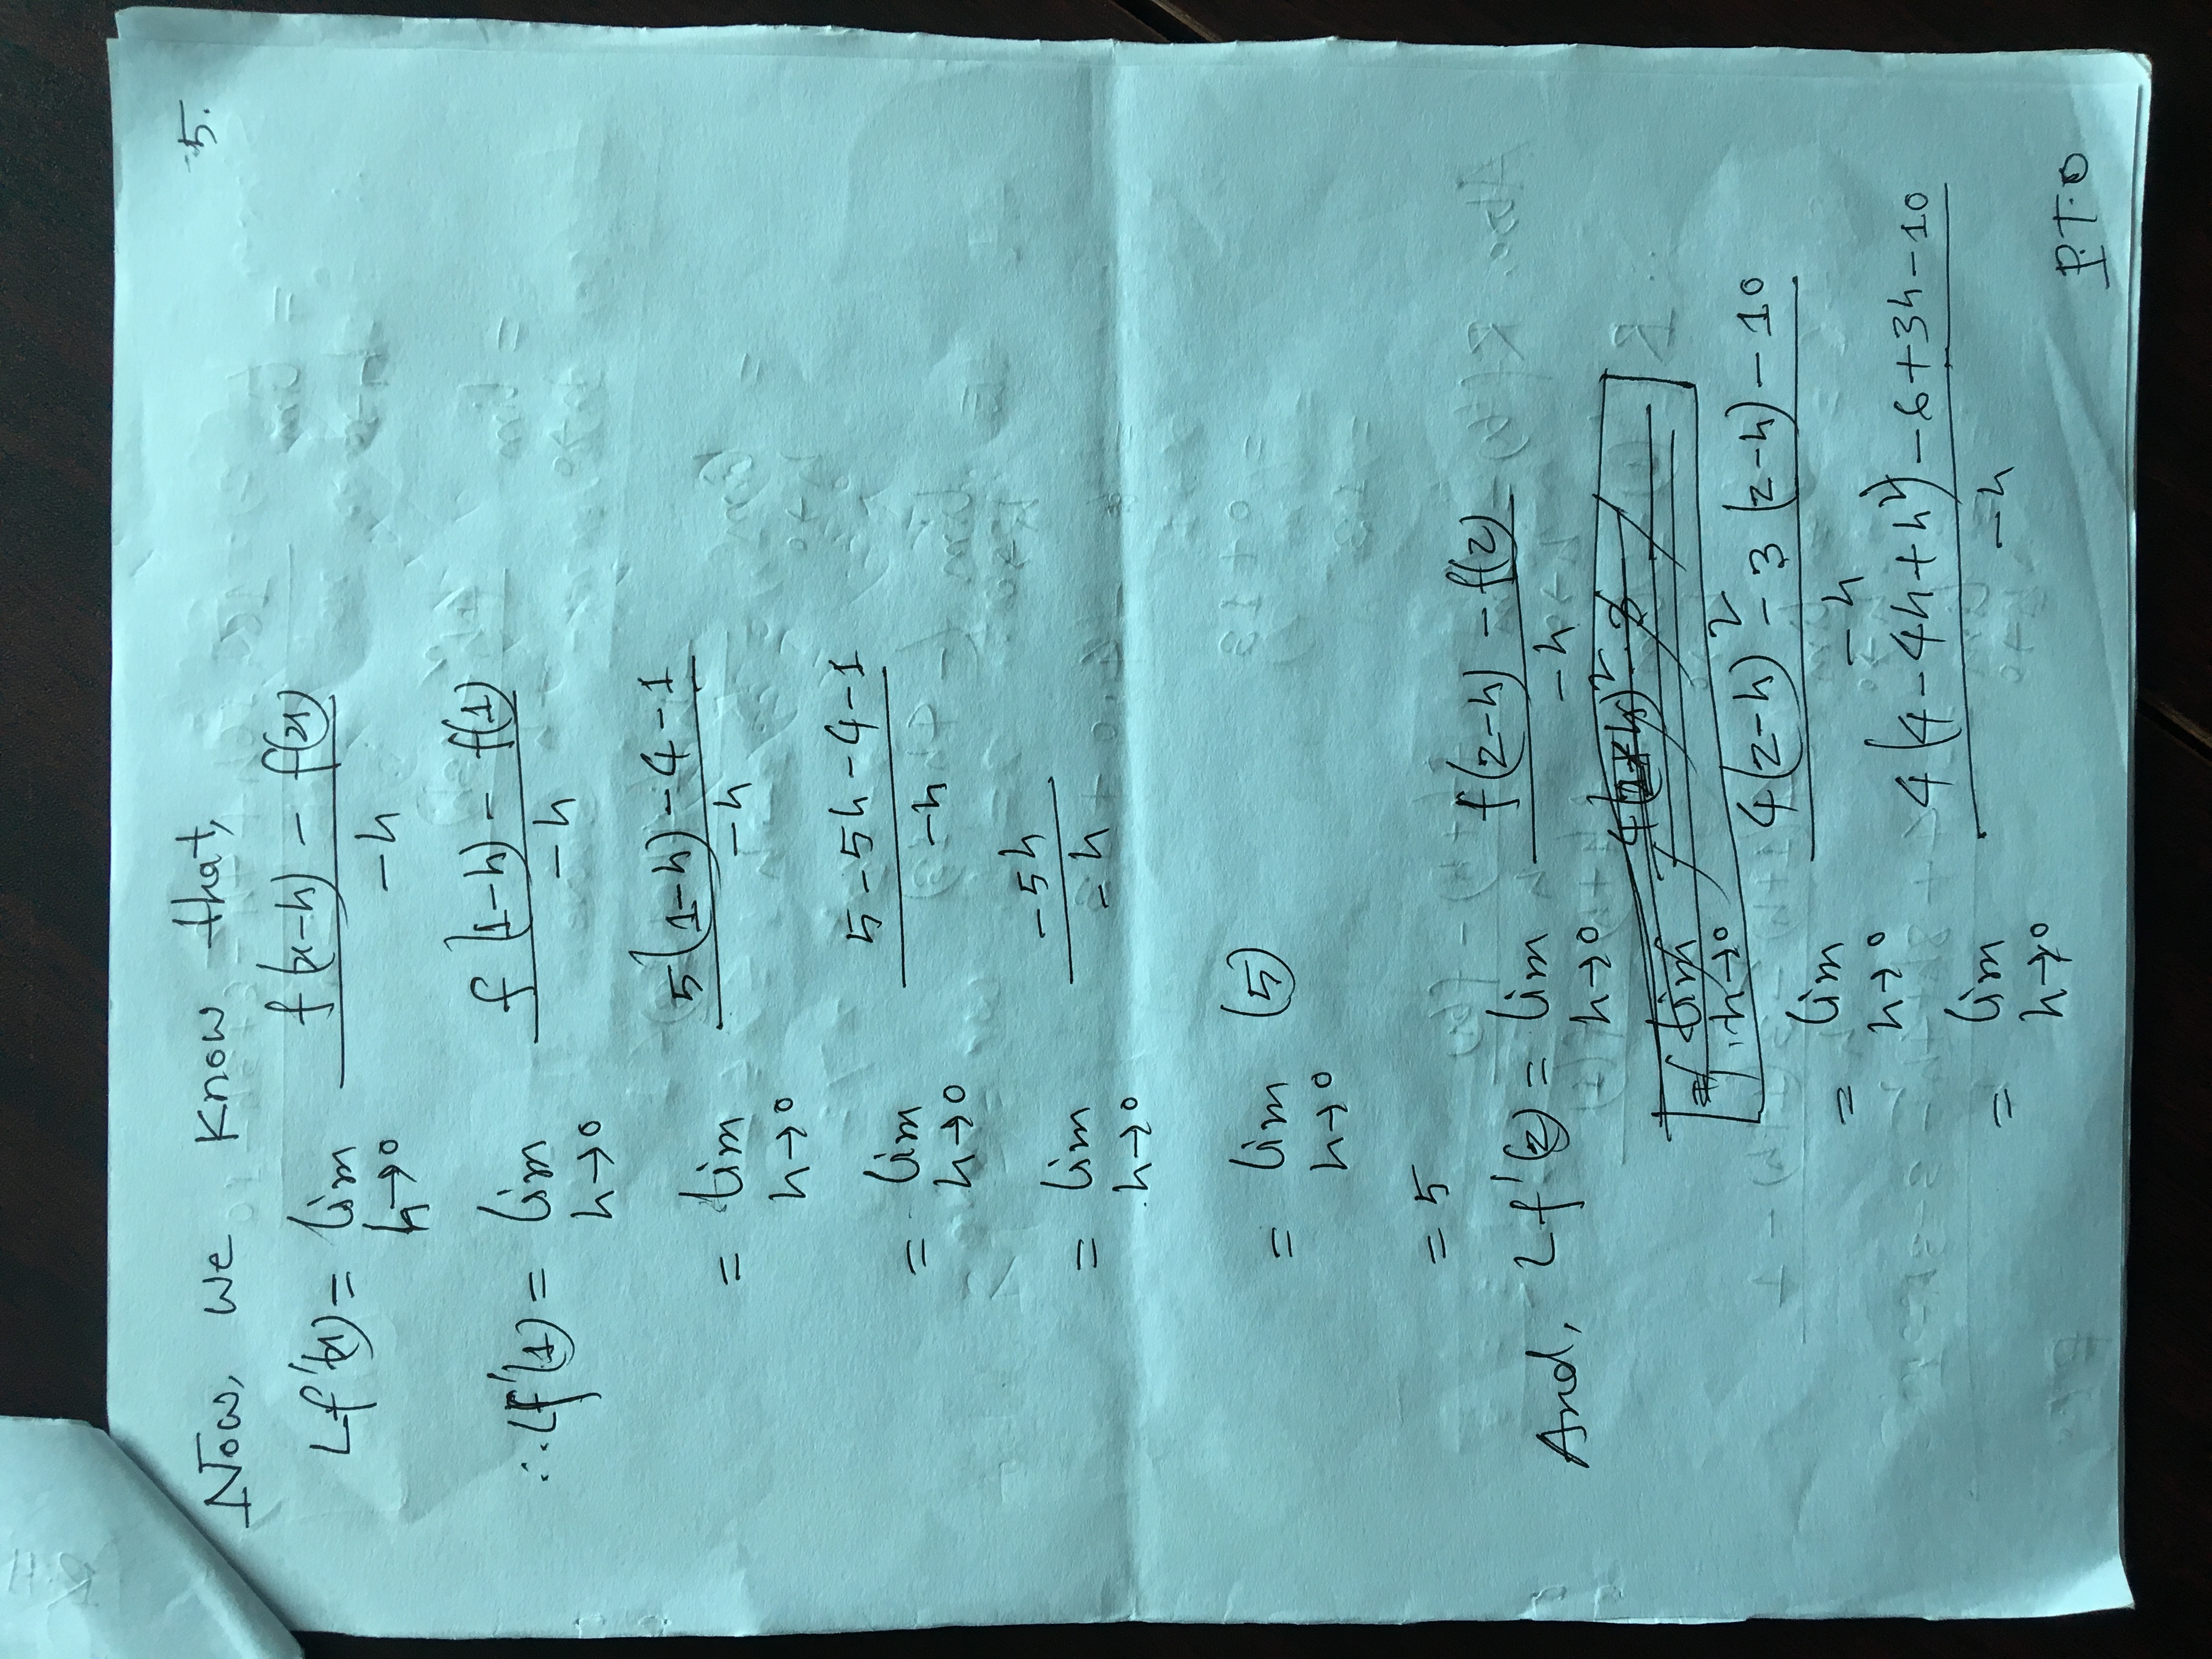 5.
Now, we know that,
Lf'(x) = lim h→0 f(x-h) - f(x) / -h
∴ Lf'(1) = lim h→0 f(1-h) - f(1) / -h
= lim h→0 5(1-h) - 4 - 1 / -h
= lim h→0 5 - 5h - 4 - 1 / -h
= lim h→0 -5h / -h
= lim h→0 (5)
= 5
And, Lf'(2) = lim h→0 f(2-h) - f(2) / -h
= lim h→0 4(2-h)² - 3(2-h) - 10 / -h
= lim h→0 4(4 - 4h + h²) - 6 + 3h - 10 / -h
P.T.O